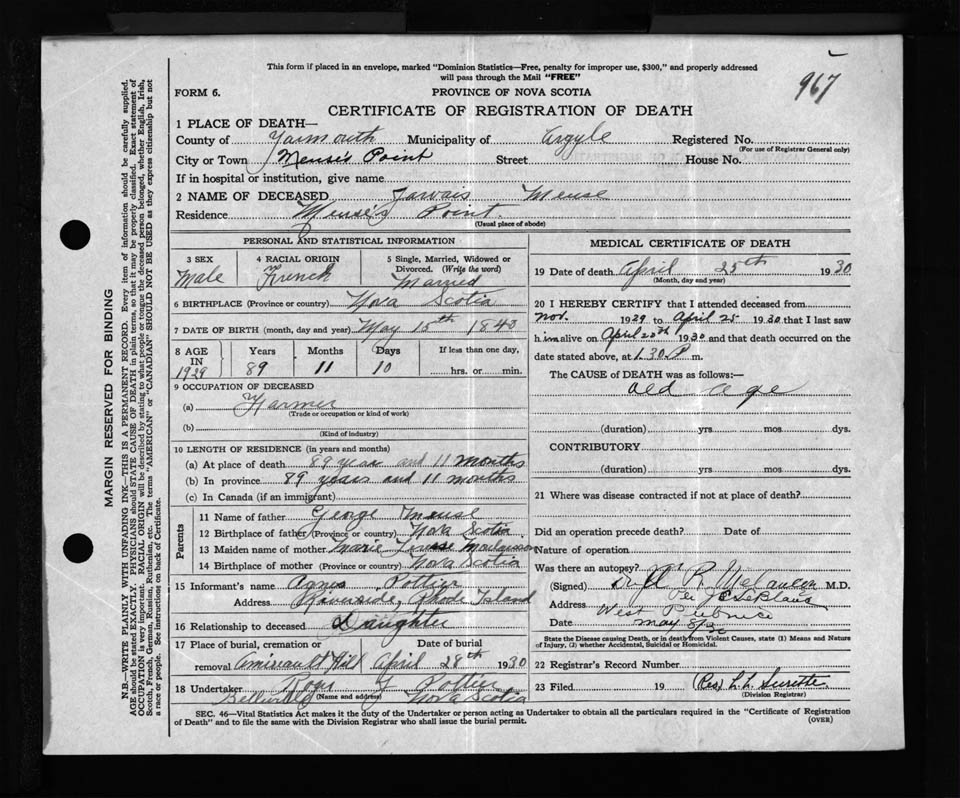 967
This form if placed in an envelope, marked "Dominion Statistics—Free, penalty for improper use, $300," and properly addressed
will pass through the Mail "FREE"
FORM 6.
PROVINCE OF NOVA SCOTIA
CERTIFICATE OF REGISTRATION OF DEATH
1 PLACE OF DEATH—
County of Yarmouth Municipality of Argyle Registered No.
(For use of Registrar General only)
City or Town Meuse's Point Street House No.
If in hospital or institution, give name
2 NAME OF DECEASED Jarvais Meuse
Residence Meuse's Point.
(Usual place of abode)
PERSONAL AND STATISTICAL INFORMATION
3 SEX
Male
4 RACIAL ORIGIN
French
5 Single, Married, Widowed or
Divorced. (Write the word)
Married
6 BIRTHPLACE (Province or country) Nova Scotia
7 DATE OF BIRTH (month, day and year) May 15th 1840
8 AGE IN 1929
Years 89
Months 11
Days 10
If less than one day,
hrs. or min.
9 OCCUPATION OF DECEASED
(a) Farmer
(Trade or occupation or kind of work)
(b)
(Kind of industry)
10 LENGTH OF RESIDENCE (in years and months)
(a) At place of death 89 year and 11 months
(b) In province 89 years and 11 months
(c) In Canada (if an immigrant)
Parents
11 Name of father George Meuse
12 Birthplace of father (Province or country) Nova Scotia
13 Maiden name of mother Marie
14 Birthplace of mother (Province or country) Nova Scotia
15 Informant's name Agnes Pottier
Address Riverside, Rhode Island
16 Relationship to deceased Daughter
17 Place of burial, cremation or Date of burial
removal Amirault Hill April 28th 1930
18 Undertaker Pottier
(Name and address)
Belleville Nova Scotia
MEDICAL CERTIFICATE OF DEATH
19 Date of death April 25th 1930
(Month, day and year)
20 I HEREBY CERTIFY that I attended deceased from
Nov. 1929 to April 25 1930 that I last saw
him alive on April 20th 1930 and that death occurred on the
date stated above, at 1.30 P m.
The CAUSE of DEATH was as follows:
Old age
(duration) yrs mos dys.
CONTRIBUTORY
(duration) yrs mos. dys.
21 Where was disease contracted if not at place of death?
Did an operation precede death? Date of
Nature of operation
Was there an autopsy?
(Signed) R. Melancon M.D.
Per J C LeBlanc
Address West Pubnico
Date May 8/30
State the Disease causing Death, or in death from Violent Causes, state (1) Means and Nature
of Injury, (2) whether Accidental, Suicidal or Homicidal.
22 Registrar's Record Number
23 Filed 19 L. L. Surette
(Division Registrar)
SEC. 46—Vital Statistics Act makes it the duty of the Undertaker or person acting as Undertaker to obtain all the particulars required in the "Certificate of Registration
of Death" and to file the same with the Division Registrar who shall issue the burial permit.
(OVER)
MARGIN RESERVED FOR BINDING
N.B.—WRITE PLAINLY WITH UNFADING INK—THIS IS A PERMANENT RECORD. Every item of information should be carefully supplied.
AGE should be stated EXACTLY. PHYSICIANS should STATE CAUSE OF DEATH in plain terms, so that it may be properly classified. Exact statement of
OCCUPATION is very important. RACIAL ORIGIN will be described by stating to what people or tongue the deceased person belonged, whether English, Irish,
Scotch, French, German, Russian, Ruthenian, etc. The terms "AMERICAN" or "CANADIAN" SHOULD NOT BE USED as they express citizenship but not
a race or people. See instructions on back of Certificate.